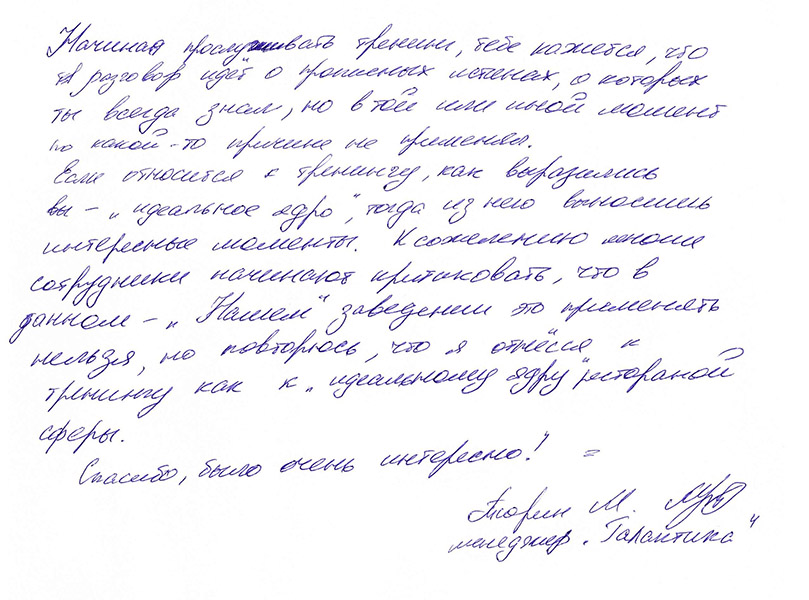 Начиная прослушивать тренинг, тебе кажется, что
разговор идёт о прописных истенах, о которых
ты всегда знал, но в той или иной момент
по какой-то причине не применял.
Если относится к тренингу, как выразились
вы - „идеальное ядро", тогда из него выносишь
интересные моменты. К сожелению многие
сотрудники начинают критиковать, что в
данном - „Нашем" заведении это применять
нельзя, но повторюсь, что я отнёсся к
тренингу как к „идеальному ядру" рестораной
сферы.
Спасибо, было очень интересно!
М.
менеджер „Галактика"